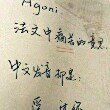 Agoni
法文中病苦的意思
中文发音抑是:
爱